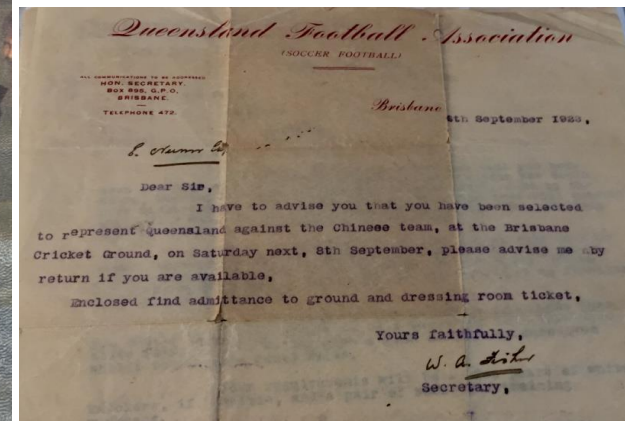 Queensland Football Association
(SOCCER FOOTBALL)
ALL COMMUNICATIONS TO BE ADDRESSED
HON. SECRETARY,
BOX 898, G.P.O.
BRISBANE.
TELEPHONE 472.
Brisbane
4th September 1923,
Dear Sir,
I have to advise you that you have been selected
to represent Queensland against the Chinese team, at the Brisbane
Cricket Ground, on Saturday next, 8th September, please advise me by
return if you are available,
Enclosed find admittance to ground and dressing room ticket,
Yours faithfully,
W. A. Fisher
Secretary,